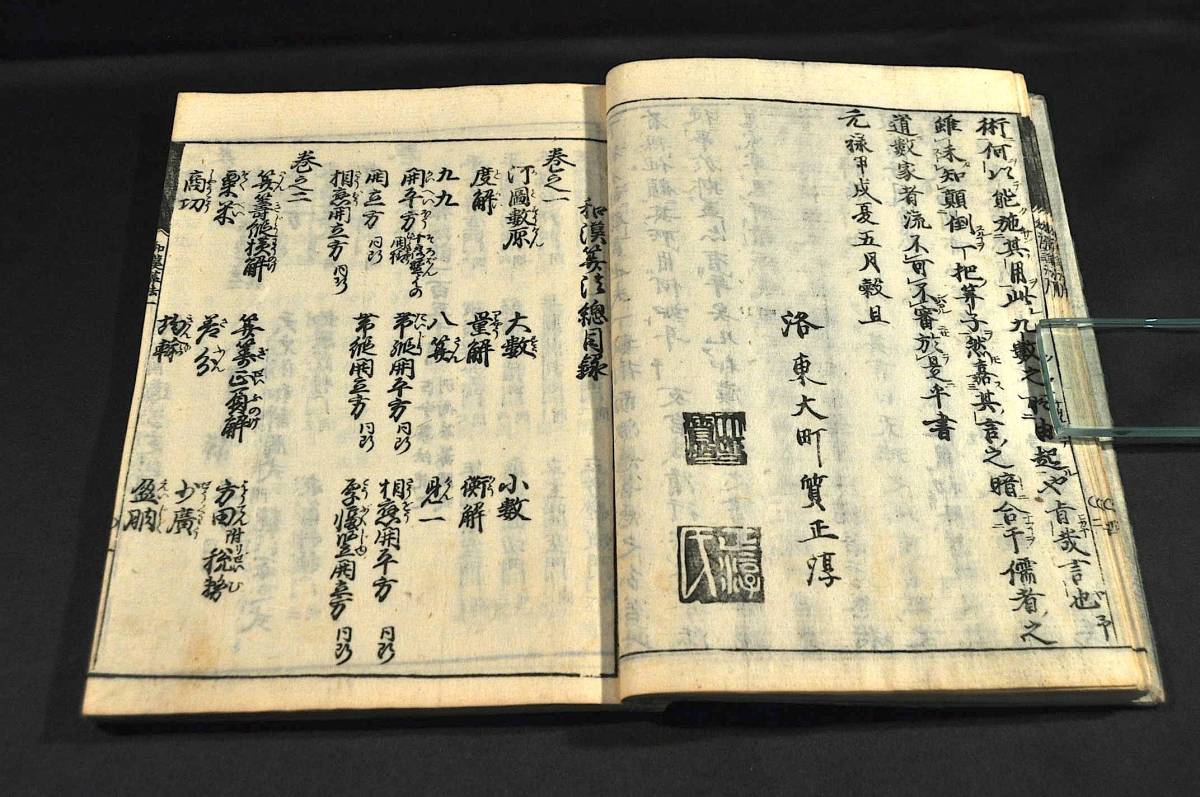 術何以能施其用此九數之所由起也旨哉言也予
雖未知顛倒一把算子然嘉其言之暗合于儒者之
道數家者流不可不審於是乎書
元祿甲戌夏五月穀旦
洛東大町質正淳
和漢筭法總目録
巻之一
河圖數原 大數 小數
度解 量解 衡解
九九 八筭 見一
開平方 帯縱開平方 同断 相應開平方 同断
開立方 同断
相應開立方 同断 帯縱開立方 同断 開立方 同断
巻之二
筭籌縱横解 筭籌正負解 方田 附リ 税務
粟米 差分 少廣
商功 均輸 盈朒